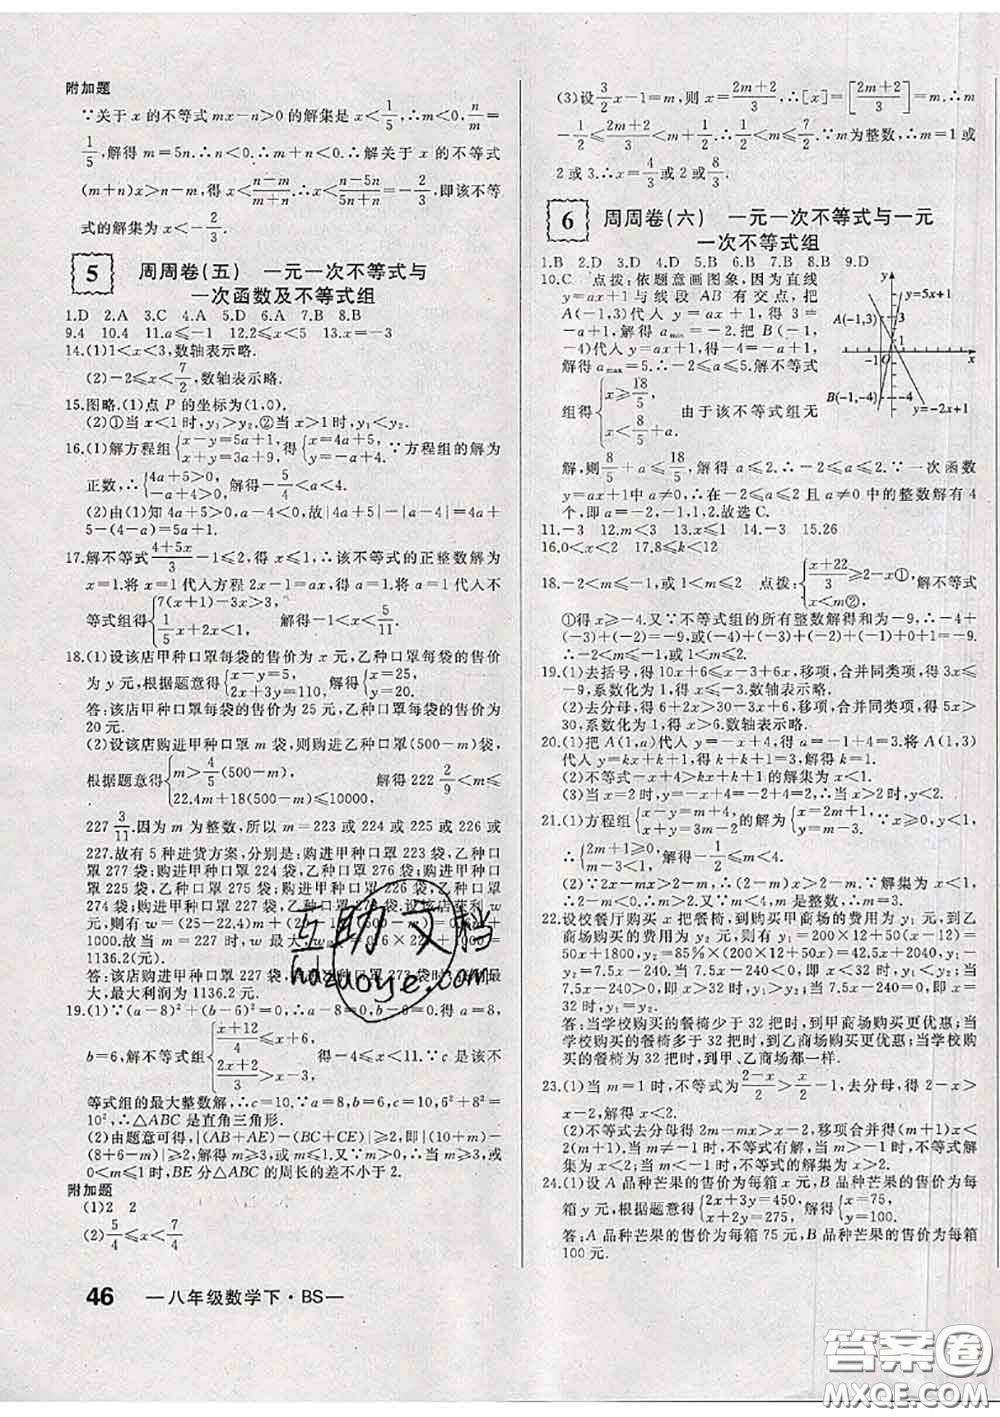 附加题
∵关于 x 的不等式 mx-n>0 的解集是 x<1/5,∴m<0,n/m=
1/5,解得 m=5n.∴n<0,∴m+n<0.∴解关于 x 的不等式
(m+n)x>n-m,得 x<(n-m)/(m+n).∴x<(n-5n)/(n+5n)=-2/3,即该不等
式的解集为 x<-2/3.
5 周周卷(五) 一元一次不等式与
一次函数及不等式组
1.D 2.A 3.C 4.A 5.D 6.A 7.B 8.B
9.4 10.4 11.a≤-1 12.2≤x≤5 13.x=-3
14.(1)1<x<3,数轴表示略.
(2)-2≤x<7/2,数轴表示略.
15.图略.(1)点 P 的坐标为(1,0).
(2)①当 x<1时,y₁>y₂.②当 x>1时,y₁<y₂.
16.(1)解方程组{x-y=5a+1, x+y=3a+9, 得{x=4a+5, y=-a+4. ∵方程组的解为
正数,∴{4a+5>0, -a+4>0, 解得-5/4<a<4.
(2)由(1)知 4a+5>0,-a-4<0,故|4a+5|-|-a-4|=4a+
5-(4-a)=5a+1.
17.解不等式(4+5x)/3-1≤2,得 x≤1,∴该不等式的正整数解为
x=1.将 x=1 代入方程 2x-a=1,得 a=1.将 a=1 代入不
等式组得{7(x+1)-3x>3, 1/5x+2x<1, 解得-1<x<5/11.
18.(1)设该店甲种口罩每袋的售价为 x 元,乙种口罩每袋的售价
为 y 元,根据题意得{x-y=5, 2x+3y=110, 解得{x=25, y=20.
答:该店甲种口罩每袋的售价为 25 元,乙种口罩每袋的售价为
20 元.
(2)设该店购进甲种口罩 m 袋,则购进乙种口罩(500-m)袋,
根据题意得{m>4/5(500-m), 22.4m+18(500-m)≤10000, 解得 222 2/9<m≤
227 3/11.因为 m 为整数,所以 m=223 或 224 或 225 或 226 或
227.故有 5 种进货方案,分别是:购进甲种口罩 223 袋,乙种口
罩 277 袋;购进甲种口罩 224 袋,乙种口罩 276 袋;购进甲种口
罩 225 袋,乙种口罩 275 袋;购进甲种口罩 226 袋,乙种口罩
274 袋;购进甲种口罩 227 袋,乙种口罩 273 袋.设该店获利 w
元,则有 w=(25-22.4)m+(20-18)(500-m)=0.6m+
1000.故当 m=227 时,w 最大,=0.6×227+1000=
1136.2(元).
答:该店购进甲种口罩 227 袋,乙种口罩 273 袋时,获利最
大,最大利润为 1136.2 元.
19.(1)∵(a-8)²+(b-6)²=0,∴a-8=0,b-6=0.得 a=8,
b=6,解不等式组{(x+12)/4≤x+6, (2x+2)/3>x-3, 得-4≤x<11.∵c 是该不
等式组的最大整数解,∴c=10.∵a=8,b=6,c=10,6²+8²=
10²,∴△ABC 是直角三角形.
(2)由题意可得,|(AB+AE)-(BC+CE)|≥2,即|(10+m)-
(8+6-m)|≥2,解得 m≥3 或 m≤1.又∵0<m<6,∴3≤m<6,或
0<m≤1时,BE 分△ABC 的周长的差不小于 2.
附加题
(1)2 2
(2)5/4≤x<7/4
46 —八年级数学下·BS—
(3)设3/2x-1=m,则 x=(2m+2)/3,∴[x]=[(2m+2)/3]=m.∴m
-1/2≤(2m+2)/3<m+1/2.∴1/2<m≤7/2.∵m为整数,∴m=1 或
2 或 3.∴x=4/3 或 2 或 8/3.
6 周周卷(六) 一元一次不等式与一元
一次不等式组
1.B 2.D 3.D 4.D 5.B 6.A 7.B 8.B 9.D
10.C 点拨:依题意画图象,因为直线
y=ax+1与线段 AB 有交点,把
A(-1,3)代入 y=ax+1,得-a+1
=3,解得 a_min=-2.把 B(-1,
-4)代入 y=ax+1,得-a+1=-4,
解得 a_max=5.∴-2≤a≤5.解不等式
组得{x≥18/5, x<8/5+a. 由于该不等式组无
解,则8/5+a≤18/5,所以 a≤2.∴-2≤a≤2.∵一次函数
y=ax+1中 a≠0,∴-2≤a≤2 且 a≠0 中的整数解有 4
个,即 a=-2,-1,1,2.故选 C.
y=5x+1
A(-1,3)
3
1
-1 O x
B(-1,-4)
-4
y=-2x+1
11.-3 12.m<3 13.x≤1 14.-3 15.26
16.0<x<2 17.8≤k<12
18.-2<m≤-1,或1<m≤2 点拨:{(x+22)/3≥2-x①, x<m②, 解不等式
①得 x≥-4.又∵不等式组的所有整数解得和为-9,∴-4+
(-3)+(-2)=-9,或(-4)+(-3)+(-2)+(-1)+0+1=-9.
∴-2<m≤-1,或1<m≤2.
19.(1)去括号,得 10x+6≤x-3+6x,移项,合并同类项,得 3x≤
-9,系数化为 1,得 x≤-3.数轴表示略.
(2)去分母,得 6+2x>30-3x+6,移项,合并同类项,得 5x>
30,系数化为 1,得 x>6.数轴表示略.
20.(1)把 A(1,a)代入 y=-x+4,得 a=-1+4=3.将 A(1,3)
代入 y=kx+k+1,得 k+k+1=3,解得 k=1.
(2)不等式-x+4>kx+k+1 的解集为 x<1.
(3)当 x=2时,y=-x+4=-2+4=2,∴当 x>2时,y<2.
21.(1)方程组{x-y=m+4, x+y=3m-2 的解为{x=2m+1, y=m-3. ∵x≥0,y<1,
∴{2m+1≥0, m-3<1. 解得-1/2≤m<4.
(2)∵2x-mx>2-m,∴(2-m)x>2-m.∵解集为 x<1,
∴2-m<0,∴m>2.又∵-1/2≤m<4,m 是整数,∴m=3.
22.设校餐厅购买 x 把餐椅,到购买甲商场的费用为 y₁ 元,到乙
商场购买的费用为 y₂ 元,则有 y₁=200×12+50(x-12)=
50x+1800,y₂=85%×(200×12+50x)=42.5x+2040.y₁
-y₂=7.5x-240.当 7.5x-240<0,即 x<32 时,y₁<y₂;当
7.5x-240>0,即 x>32时,y₁>y₂;当 7.5x-240=0,即 x=
32时,y₁=y₂.
答:当学校购买的餐椅少于 32 把时,到甲商场购买更优惠;当
学校购买的餐椅多于 32 把时,到乙商场购买更优惠;当学校购
买的餐椅为 32 把时,到甲、乙商场都一样.
23.(1)当 m=1 时,得(2-x)/2>x/2-1,去分母,得 2-x>x-
2,解得 x<2.
(2)不等式去分母得 2m-mx>x-2,移项合并得(m+1)x<
2(m+1),当 m≠-1时,不等式有解,当 m>-1 时,不等式的
解集为 x<2;当 m<-1时,不等式的解集为 x>2.
24.(1)设 A 品种芒果的售价为每箱 x 元,B 品种芒果的售价为每
箱 y 元,根据题意得{2x+3y=450, x+2y=275, 解得{x=75, y=100.
答:A 品种芒果的售价为每箱 75 元,B 品种芒果的售价为每箱
100 元.
互助文档
hdzuoye.com
答案卷
MXQE.COM